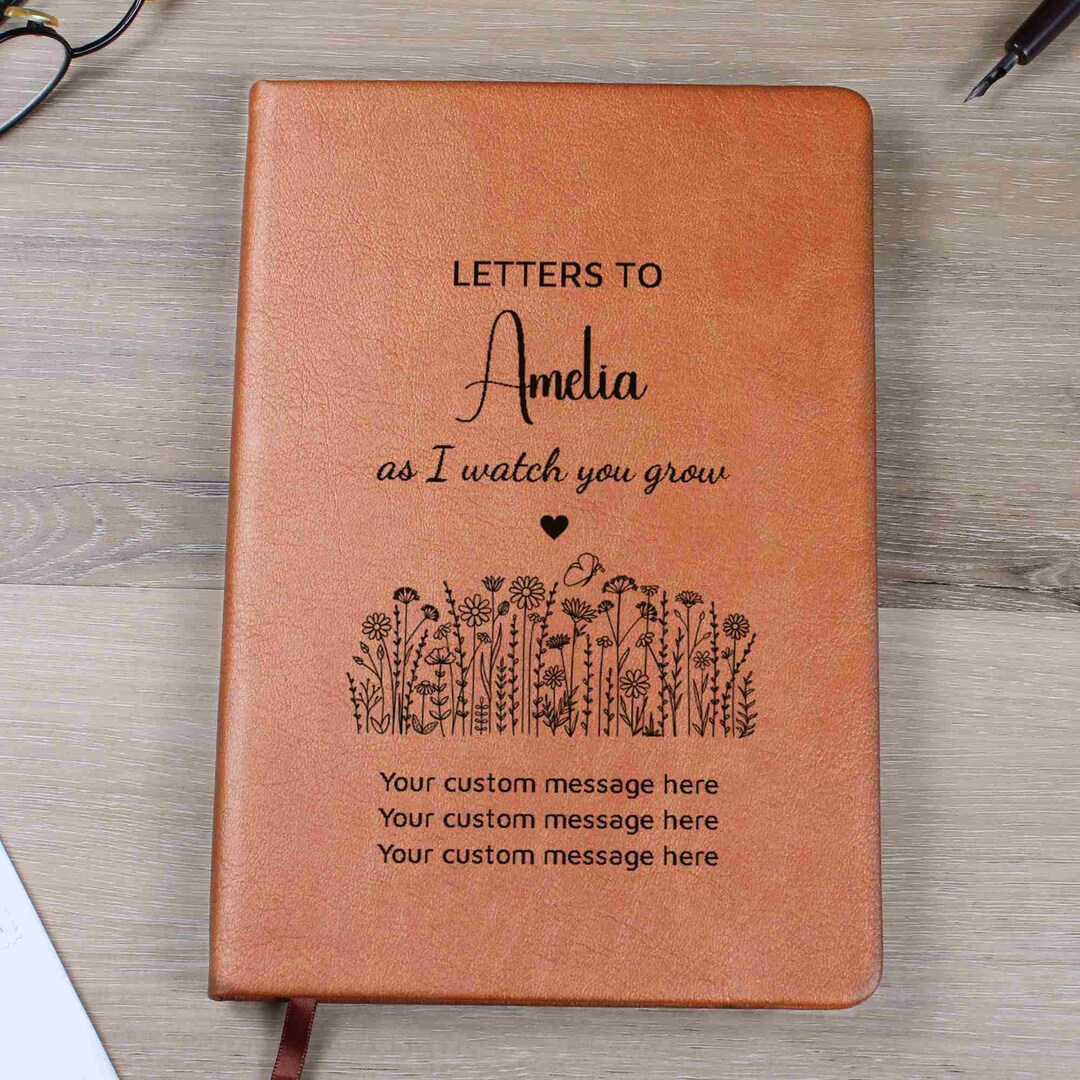 LETTERS TO
Amelia
as I watch you grow
Your custom message here
Your custom message here
Your custom message here